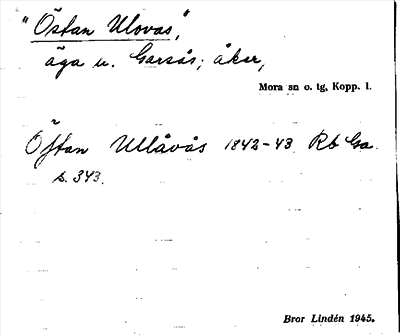 "Östan Ulovas",
äga u. Garsås; åker,
Mora sn o. tg, Kopp. l.
Öftan Ullåvås 1842-43 Rb Ga.
s. 343.
Bror Lindén 1945.